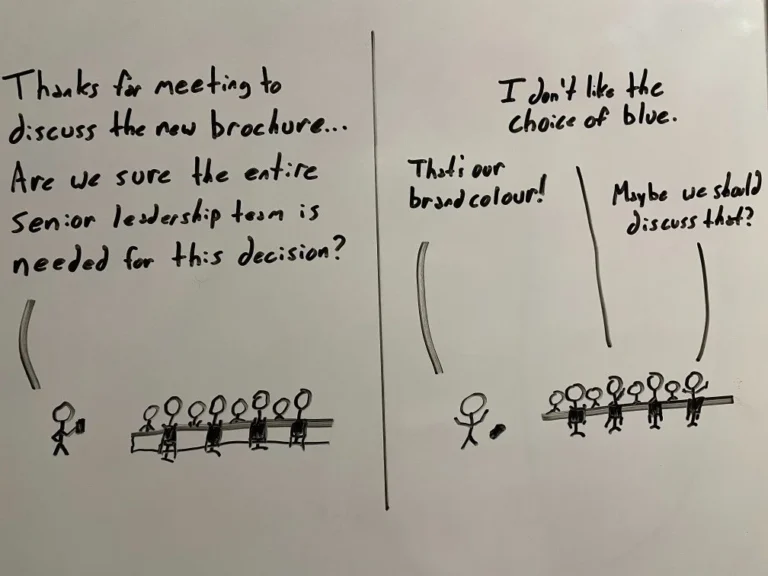 Thanks for meeting to
discuss the new brochure...
Are we sure the entire
senior leadership team is
needed for this decision?
I don't like the
choice of blue.
That's our
brand colour!
Maybe we should
discuss that?